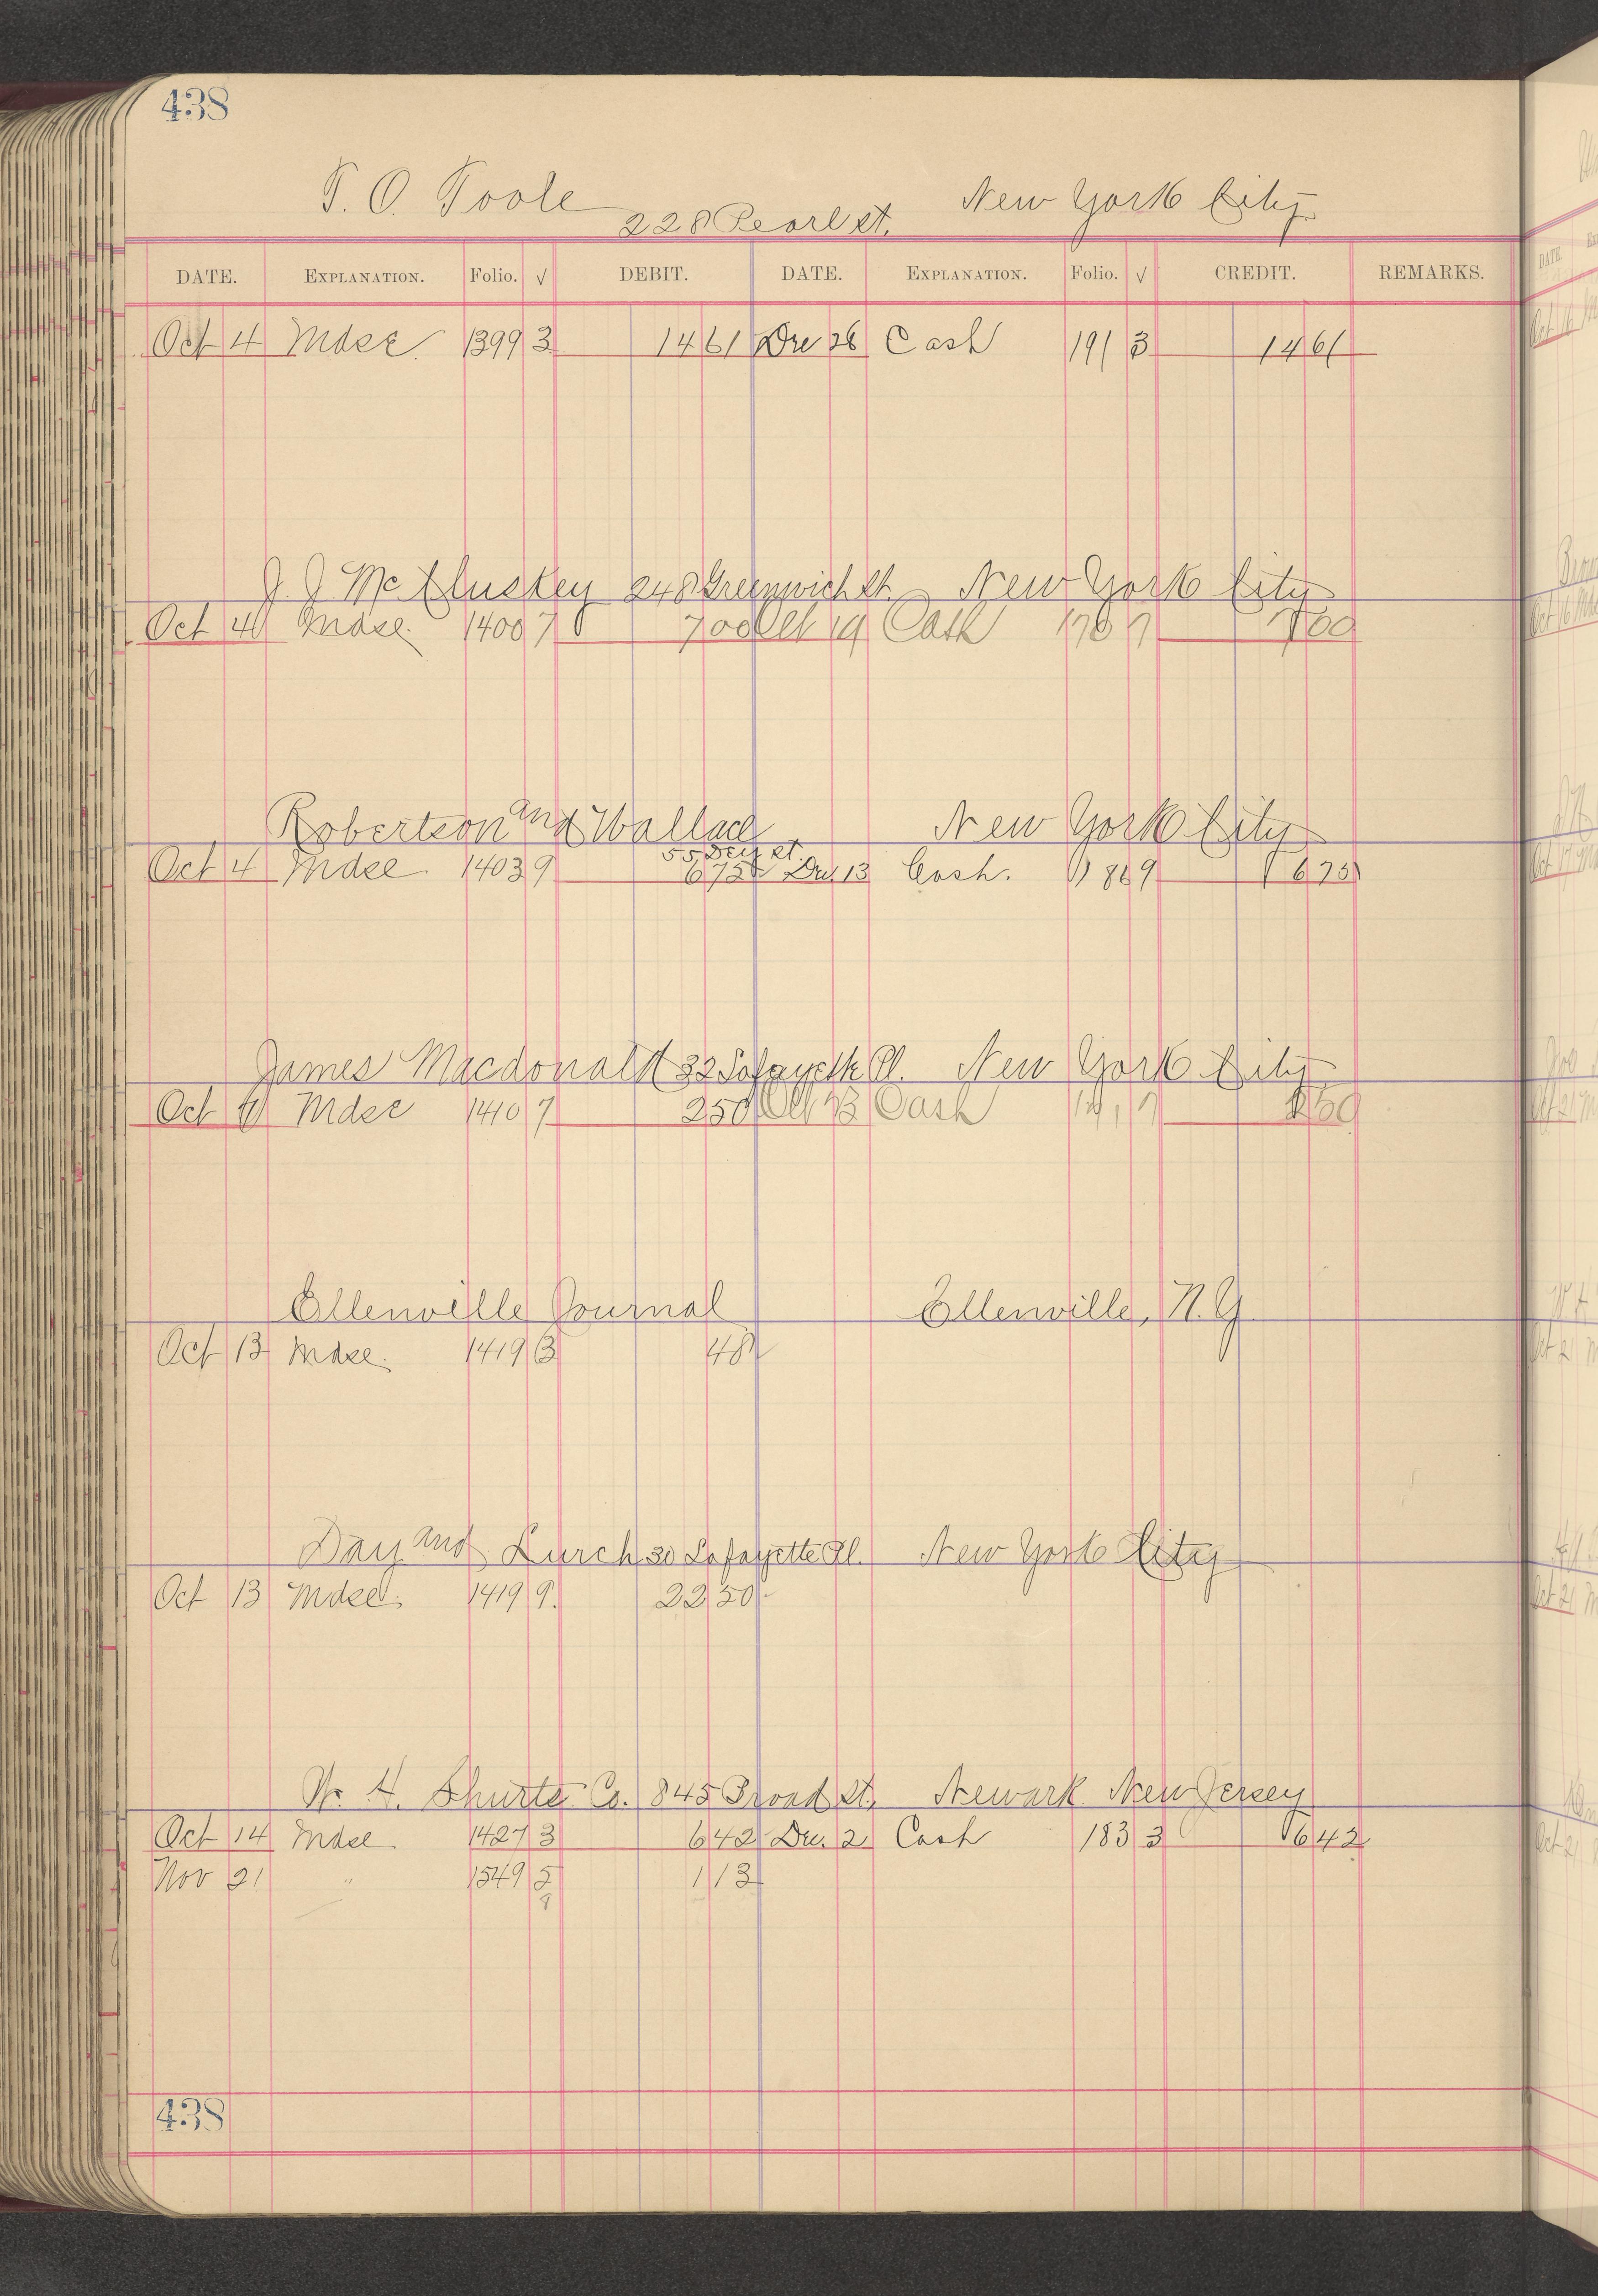 438
T. O. Toole 228 Pearl St. New York City
DATE. EXPLANATION. Folio. √ DEBIT. DATE. EXPLANATION. Folio. √ CREDIT. REMARKS.
Oct 4 Mdse 1399 3 14 61 Dec 26 Cash 191 3 14 61
J. J. McCluskey 248 Greenwich St. New York City
Oct 4 Mdse. 1400 7 7 00 Oct 19 Cash 170 7 7 00
Robertson and Wallace New York City
55 Dey St.
Oct 4 Mdse 1403 9 6 75 Dec 13 Cash. 186 9 6 75
James Macdonald 32 Lafayette Pl. New York City
Oct Mdse 1410 7 2 50 Oct Cash 7 2 50
Ellenville Journal Ellenville, N.Y.
Oct 13 Mdse. 1419 3 48
Day and Lurch 30 Lafayette Pl. New York City
Oct 13 Mdse. 1419 9. 22 50
W. H. Shurts Co. 845 Broad St. Newark New Jersey
Oct 14 Mdse 1427 3 6 42 Dec. 2 Cash 183 3 6 42
Nov 21 " 1549 5 1 13
438